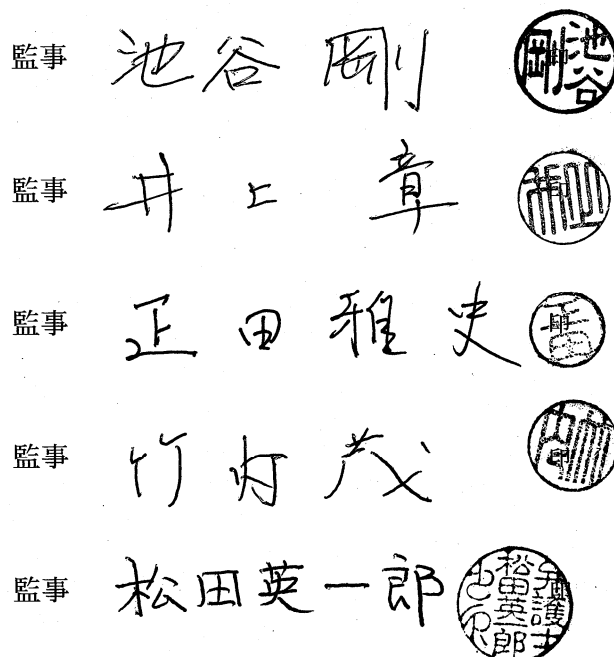 監事 池谷 剛 池谷剛
監事 井上 章
監事 正田雅史
監事 竹内 茂
監事 松田英一郎 弁護士松田英一郎之印